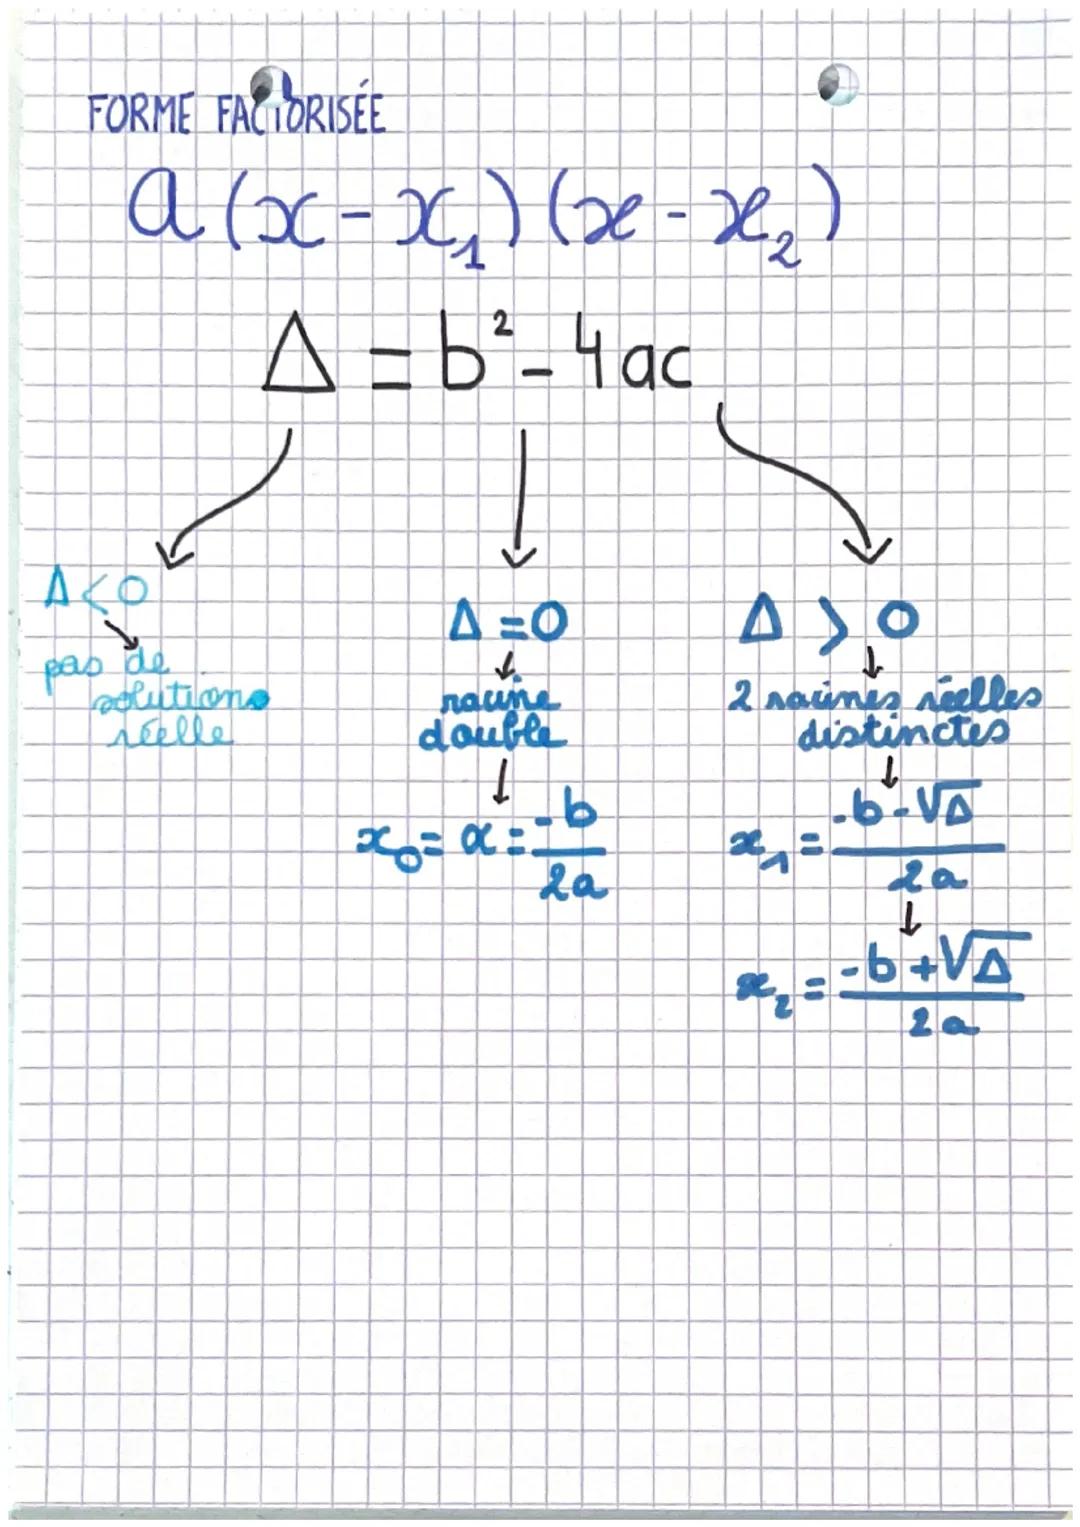 FORME FACTORISÉE
a (x - x₁) (x - x₂)
Δ = b² - 4ac
Δ < 0
pas de
solutions
réelle
Δ = 0
racine
double
x₀ = α = -b/2a
Δ > 0
2 racines réelles
distinctes
x₁ = -b - √Δ / 2a
x₂ = -b + √Δ / 2a